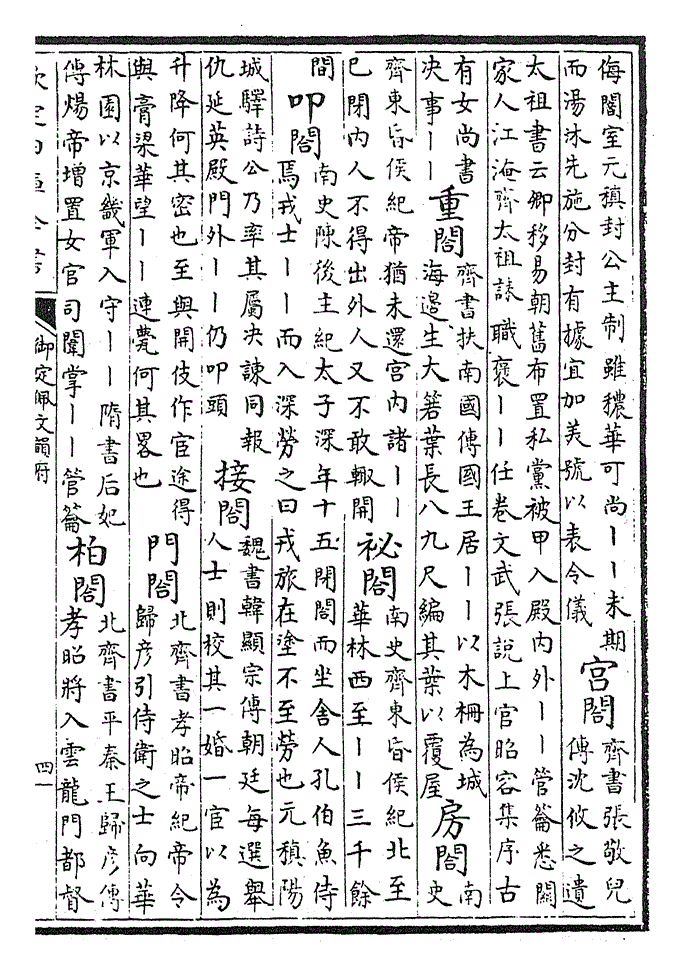 侮閤室元稹封公主制雖穠華可尚ーー未期
而湯沐先施分封有據宜加美號以表令儀
宮閤
齊書張敬兒
傳沈攸之遺
太祖書云卿移易朝舊布置私黨被甲入殿內外ーー管籥悉關
家人江淹齊太祖誄職襃ーー任卷文武張說上官昭容集序古
有女尚書
決事ーー
重閤
齊書扶南國傳國王居ーー以木柵為城
海邉生大箬葉長八九尺編其葉以覆屋
房閤
南
史
齊東昏侯紀帝猶未還宮內諸ーー
已閉內人不得出外人又不敢輙開
祕閤
南史齊東昏侯紀北至
華林西至ーー三千餘
間
叩閤
南史陳後主紀太子深年十五閉閤而坐舍人孔伯魚侍
焉戎士ーー而入深勞之曰戎旅在塗不至勞也元稹陽
城驛詩公乃率其屬決諫同報
仇延英殿門外ーー仍叩頭
接閤
魏書韓顯宗傳朝廷每選舉
人士則校其一婚一官以為
升降何其密也至與開伎作宦途得
與膏梁華望ーー連甍何其畧也
門閤
北齊書孝昭帝紀帝令
歸彥引侍衛之士向華
林園以京畿軍入守ーー隋書后妃
傳煬帝增置女官司闈掌ーー管籥
柏閤
北齊書平秦王歸彥傳
孝昭將入雲龍門都督
欽定四庫全書
御定佩文韻府
四一